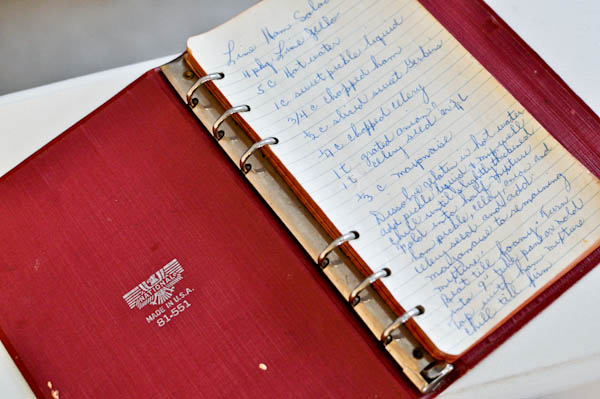 NATIONAL
MADE IN U.S.A.
81-551
Lime Ham Salad
4 pkg Lime Jello
5 c Hot water
1 c sweet pickle liquid
3/4 c chopped ham
1/2 c sliced sweet
1/2 c chopped celery
1 t grated onion
1 t celery seed
1/3 c mayonaise
Dissolve gelatin in hot water
add pickle liquid & mix well
chill until slightly thickened
Fold into half mixture
ham, pickle, celery, onion and
celery seed and add
mayonaise to remaining
mixture
Beat till foamy. Turn
into 9" jelly pan or mold
top with ham mixture
chill till firm